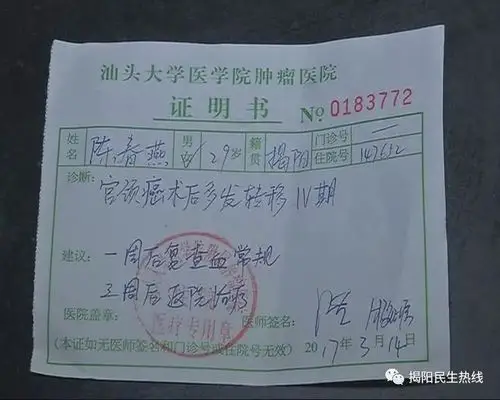 汕头大学医学院肿瘤医院
证明书 No 0183772
姓名 陈春燕 男女 29岁 籍贯 揭阳 门诊号 — 住院号 147632
诊断: 宫颈癌术后多发转移IV期
建议: 一周后复查血常规
三周后返院治疗
医院盖章: 医疗专用章 医师签名:
(本证如无医师签名和门诊号或住院号无效) 2017年3月14日
揭阳民生热线